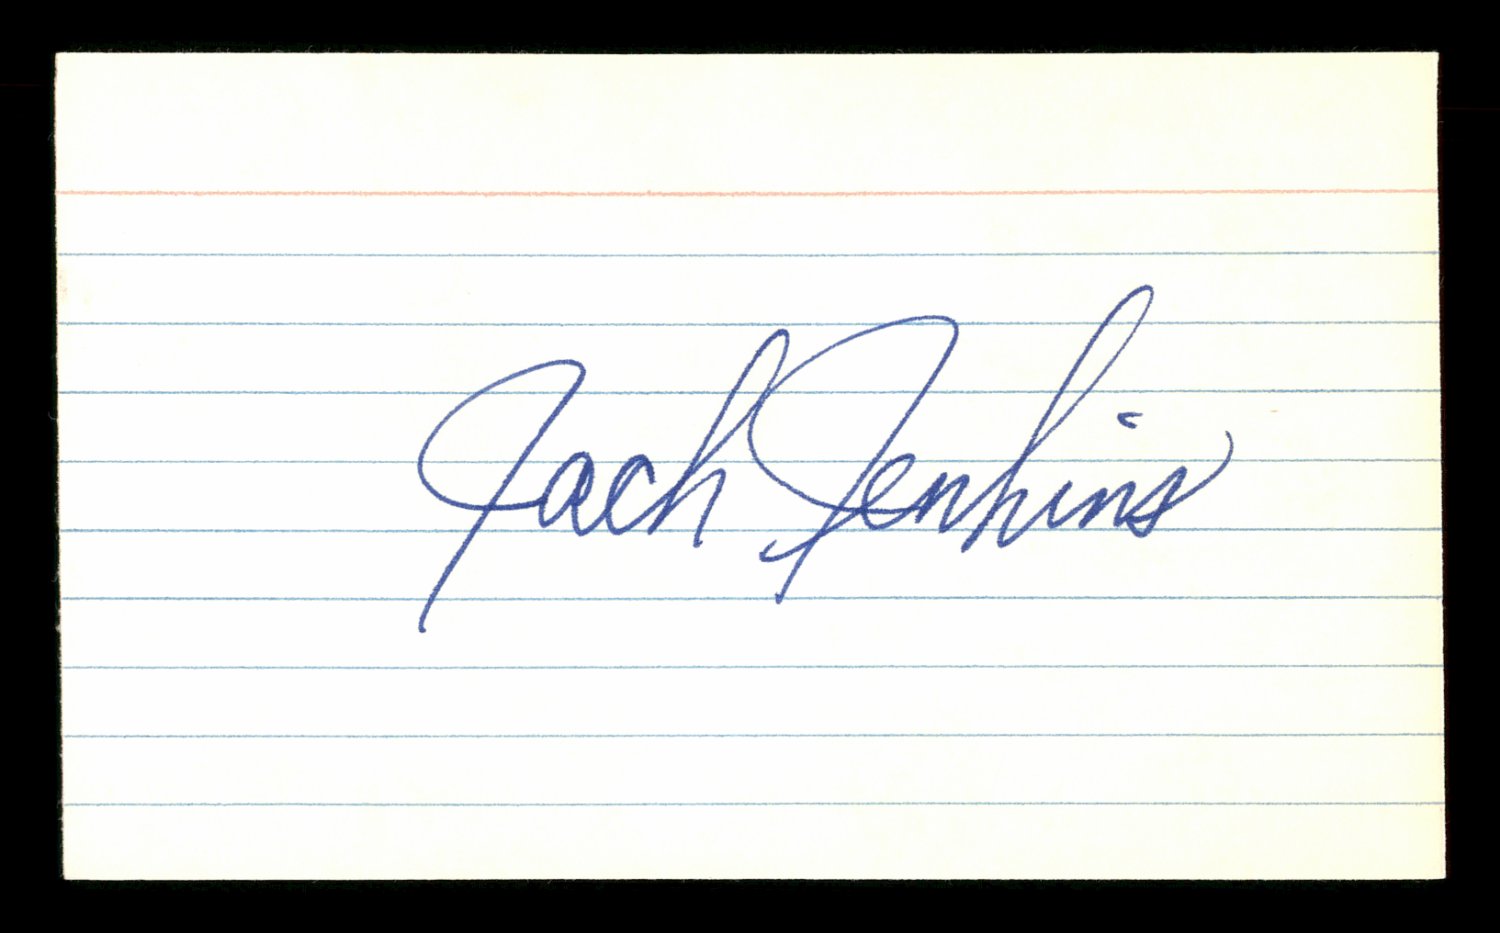 Jack Jenkins